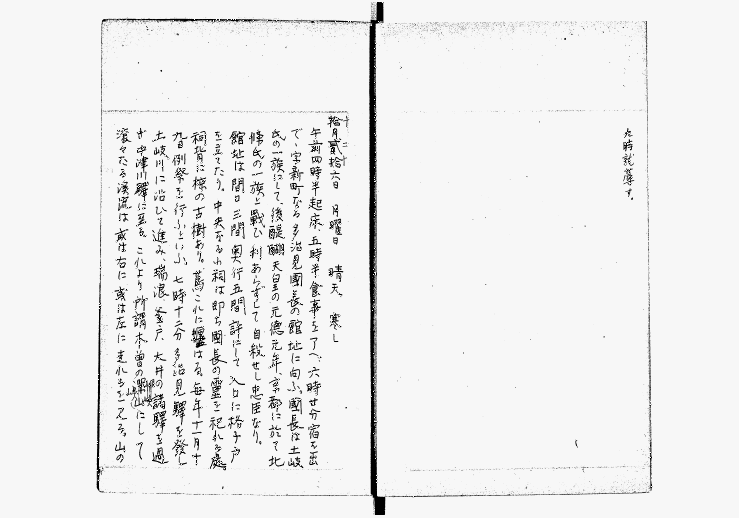 九時就蓐す。
拾月貳拾六日　月曜日　晴天、寒し
午前四時半起床、五時半食事を了へ、六時廿分宿を出
で、字新町なる多治見國長の館址に向ふ。國長は土岐
氏の一族にして、後醍醐天皇の元德元年、京都に於て北
條氏の一族と戰ひ、利あらずして自殺せし忠臣なり。
館址は間口三間奥行五間許にして、入口に格子戸
を立てたり。中央なる小祠は即ち國長の靈を祀れる處、
祠背に樅の古樹あり。蔦これに纏はる。毎年十一月十
九日例祭を行ふといふ。七時十二分多治見驛を發し
土岐川に沿ひて進み、瑞浪、釜戸、大井の諸驛を過
ぎ中津川驛に至る。これより所謂木曽の にして
滾々たる溪流は或は右に、或は左に走れるを見る。山の